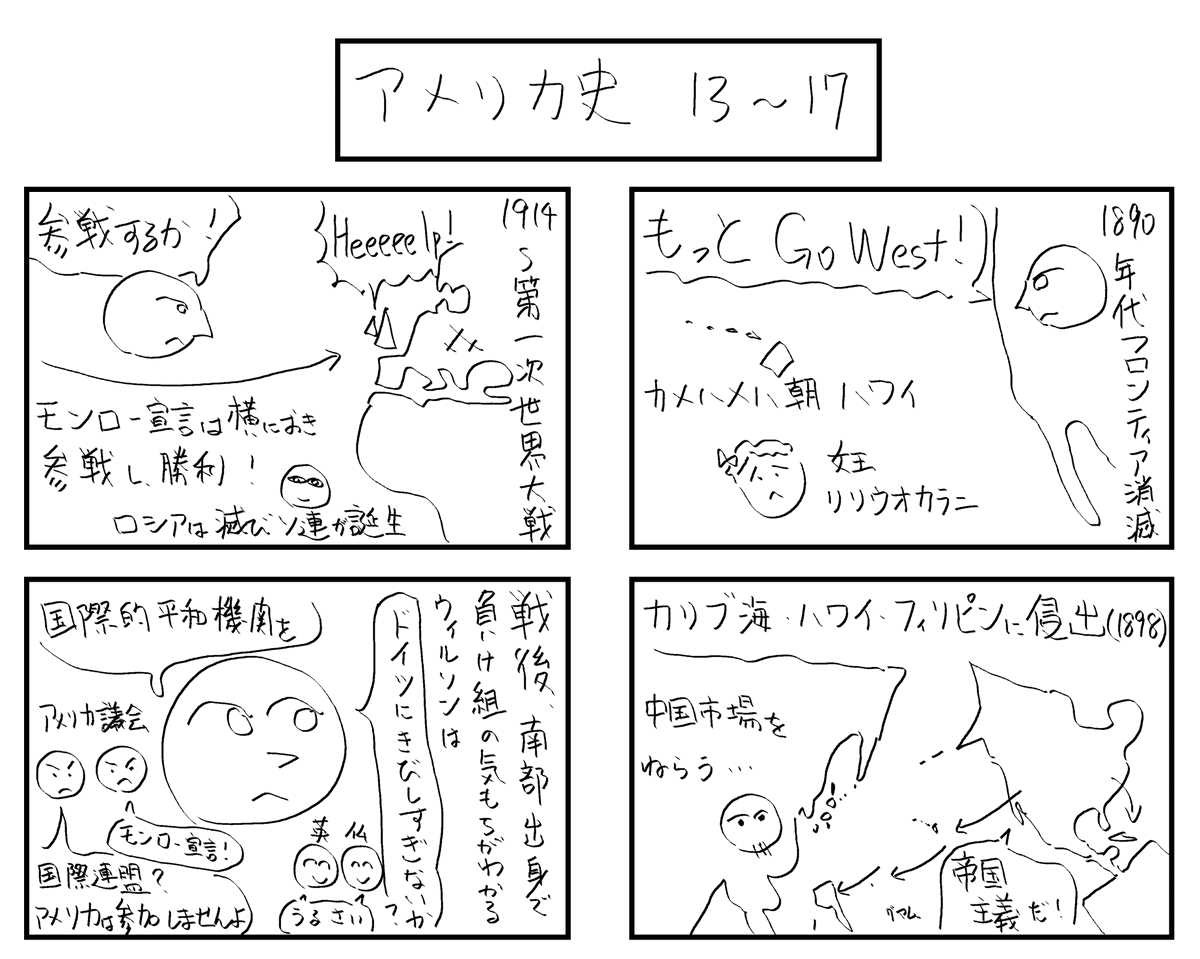 アメリカ史 13～17
1890年代フロンティア消滅
もっと Go West!
カメハメハ朝 ハワイ
女王
リリウオカラニ
カリブ海・ハワイ・フィリピンに侵出(1898)
中国市場を
ねらう…
帝国
主義だ!
グアム
1914～第一次世界大戦
Heeeeelp!
参戦するか!
モンロー宣言は横におき
参戦し、勝利!
ロシアは滅びソ連が誕生
戦後、南部出身で
負け組の気もちがわかる
ウィルソンは
ドイツにきびしすぎないか?
国際的平和機関を
アメリカ議会
モンロー宣言!
国際連盟?
アメリカは参加しませんよ
英 仏
うるさい